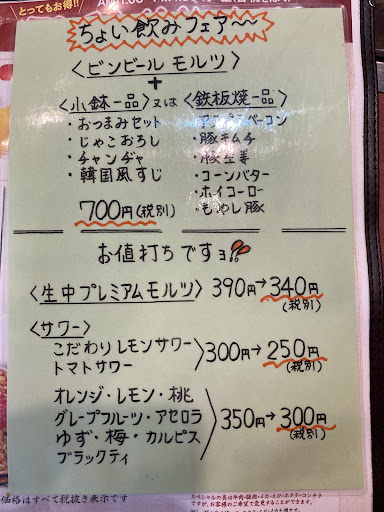 とってもお得!!
ちょい飲みフェア〜〜
〈ビンビール モルツ〉
+
〈小鉢一品〉又は〈鉄板焼一品〉
・おつまみセット
・じゃこおろし
・チャンヂャ
・韓国風すじ
・アスパラベーコン
・豚キムチ
・豚生姜
・コーンバター
・ホイコーロー
・もやし豚
700円(税別)
お値打ちですョ!!
〈生中プレミアムモルツ〉390円→340円(税別)
〈サワー〉
こだわりレモンサワー
トマトサワー
300円→250円(税別)
オレンジ・レモン・桃
グレープフルーツ・アセロラ
ゆず・梅・カルピス
ブラックティ
350円→300円(税別)
価格はすべて税抜き表示です
スペシャルの具は牛肉・豚肉・イカ・エビ・ホタテ・コンチク
ですが、お客様のご希望で変更することができます。